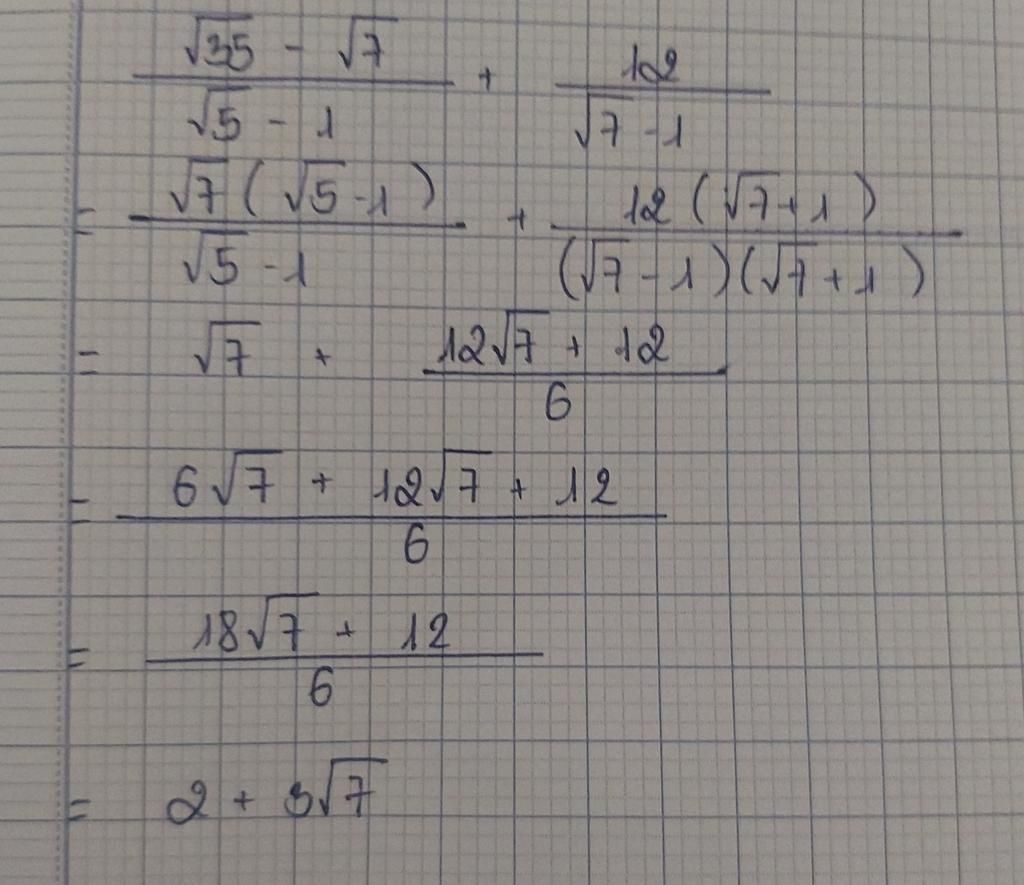 (√35 - √7)/(√5 - 1) + 12/(√7 - 1)
= √7(√5 - 1)/(√5 - 1) + 12(√7 + 1)/((√7 - 1)(√7 + 1))
= √7 + (12√7 + 12)/6
= (6√7 + 12√7 + 12)/6
= (18√7 + 12)/6
= 2 + 3√7